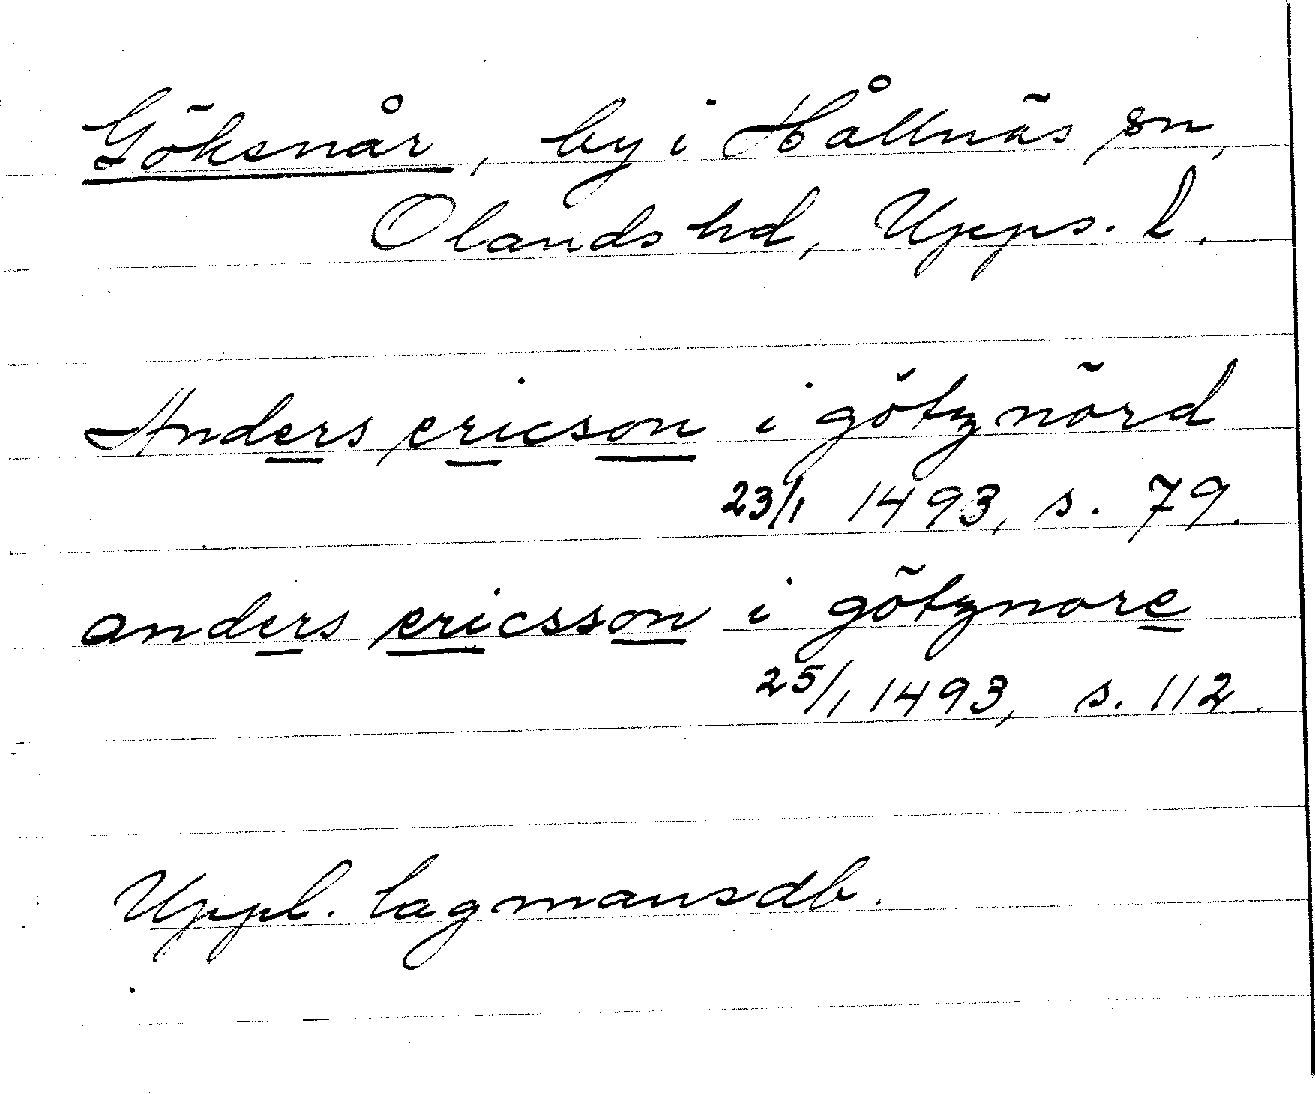 Göksnår, by i Hållnäs sn,
Olands hd, Upps. l.
Anders ericson i götznörd
23/1 1493, s. 79.
anders ericsson i götznore
25/1 1493, s. 112.
Uppl. lagmansdb.